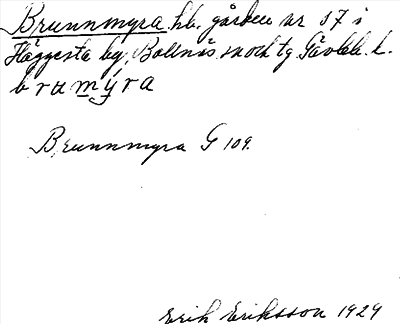 Brunnmyra hb. gården nr 37 i
Häggesta by, Bollnäs sn och tg Gävleb. l.
brum̲ýra
Brunnmyra G 109.
Erik Eriksson 1929